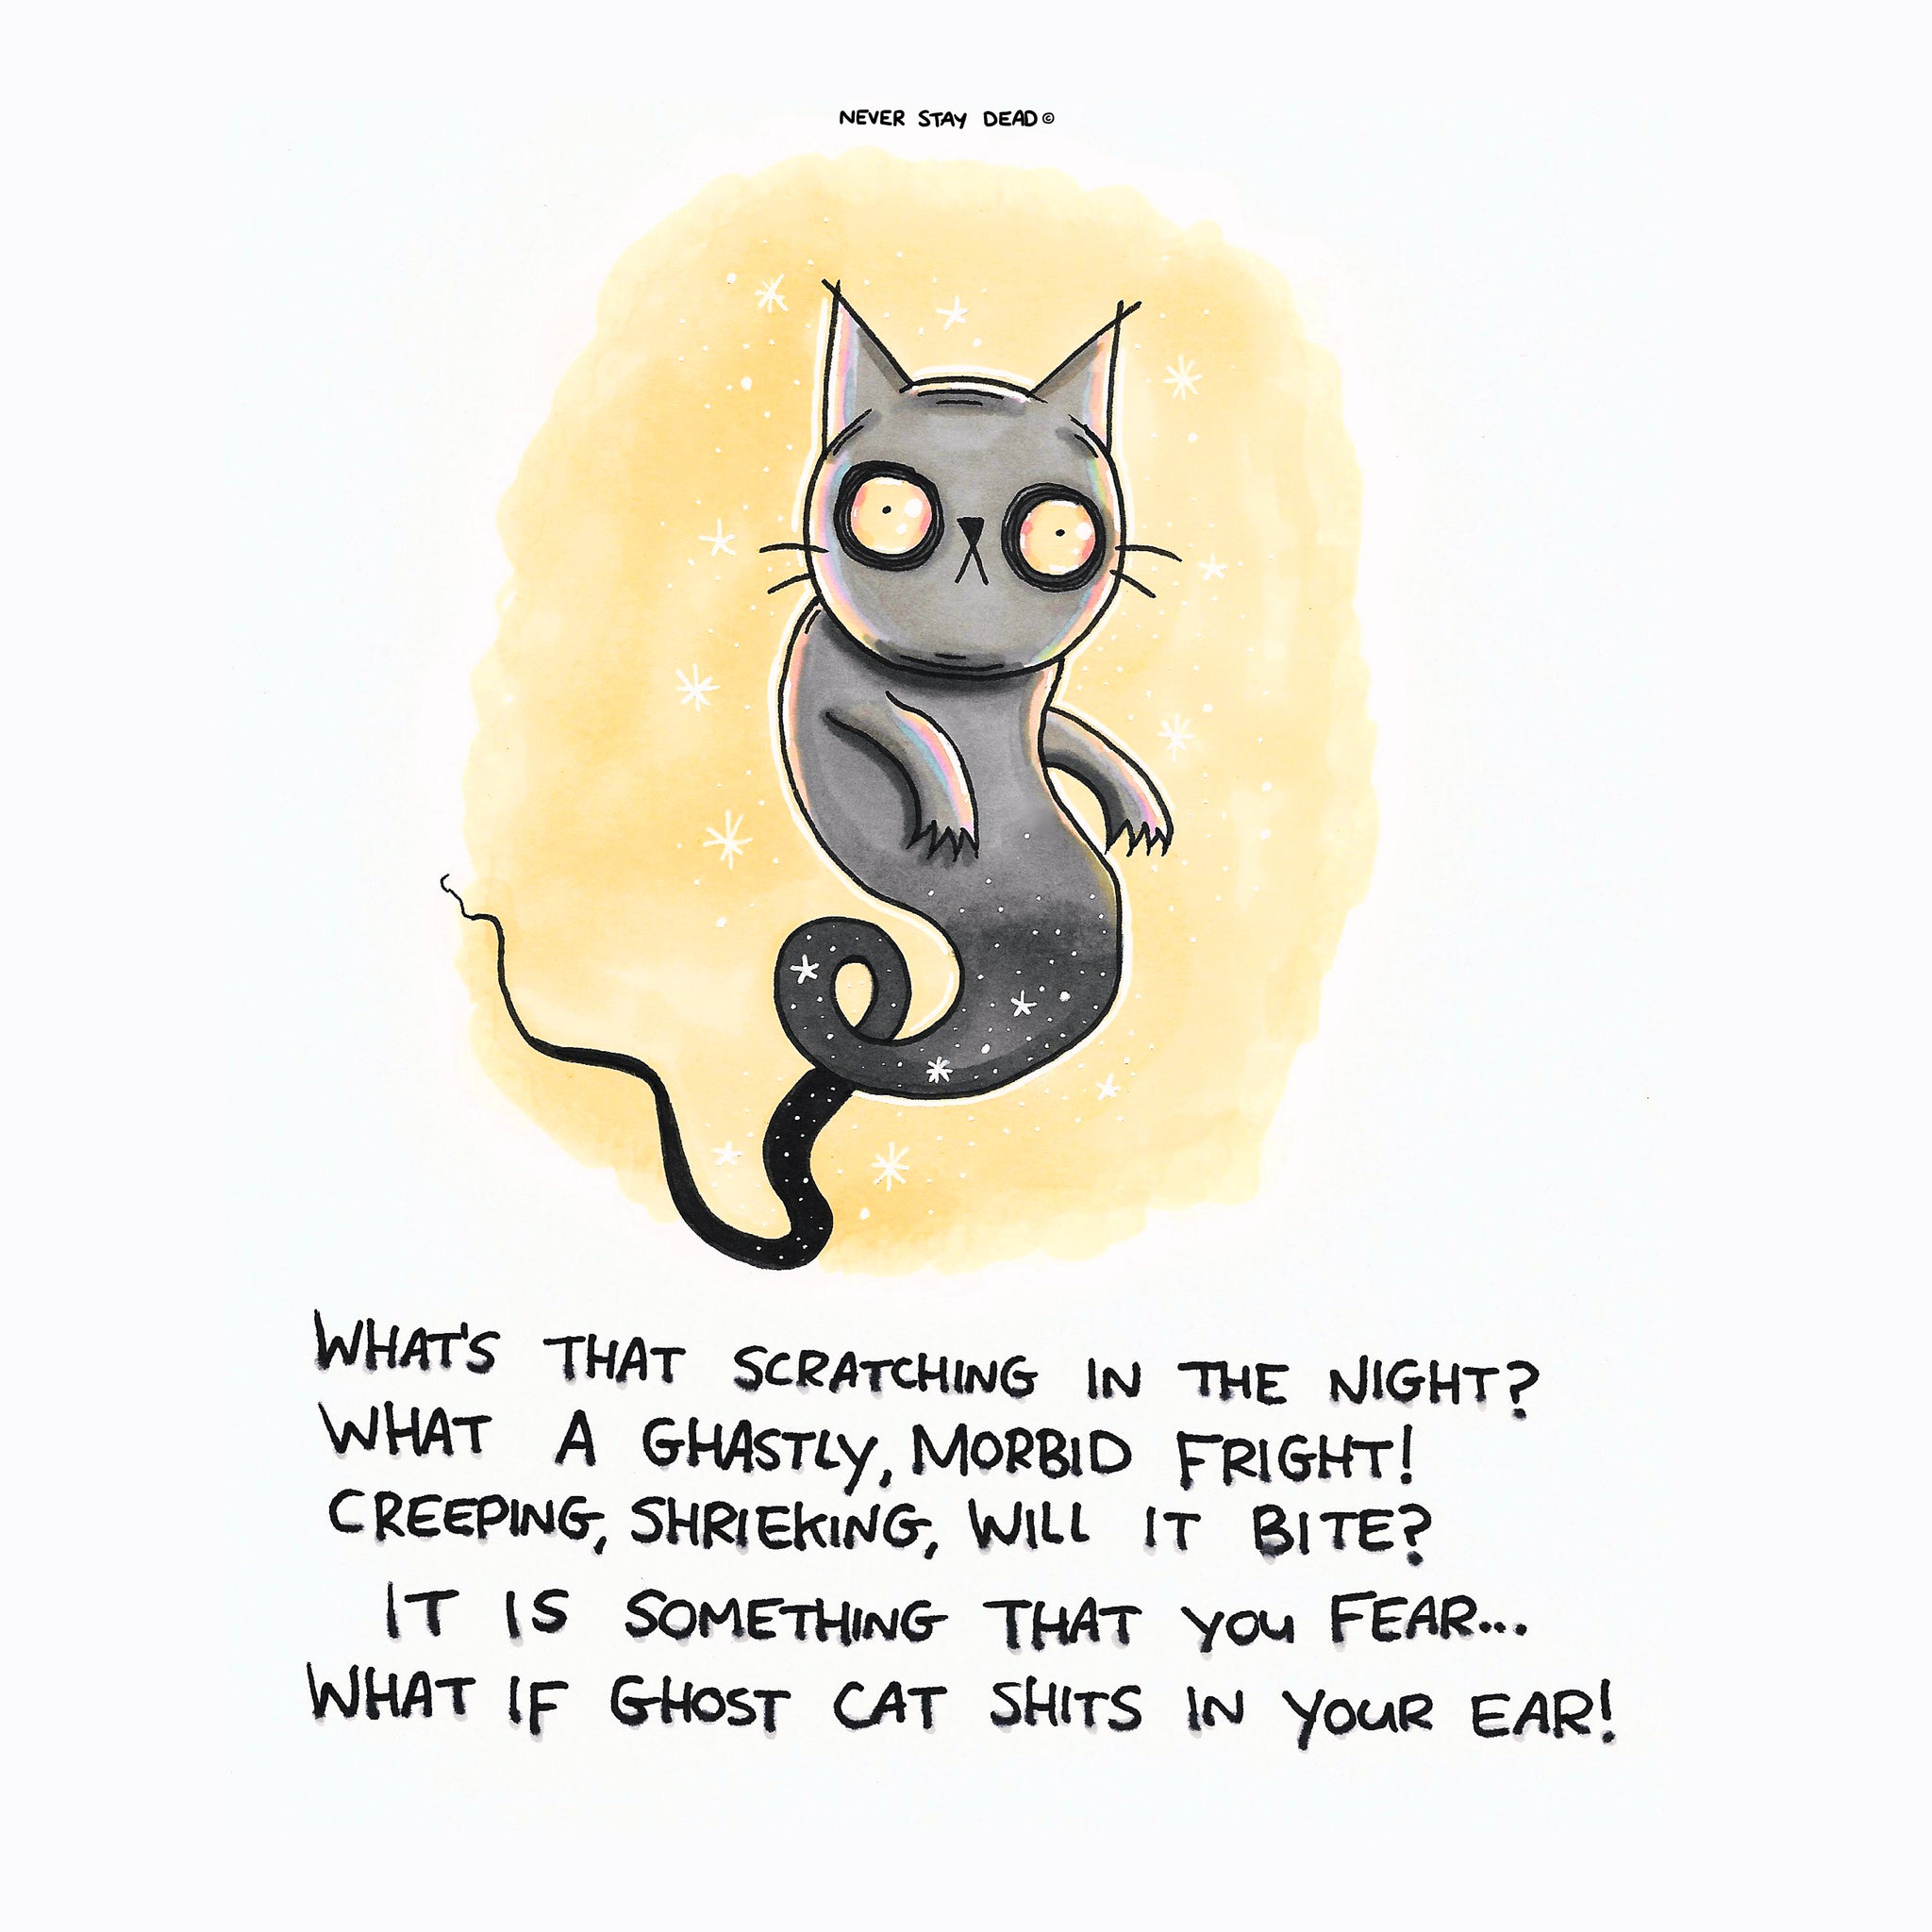 NEVER STAY DEAD©
WHAT'S THAT SCRATCHING IN THE NIGHT?
WHAT A GHASTLY, MORBID FRIGHT!
CREEPING, SHRIEKING, WILL IT BITE?
IT IS SOMETHING THAT YOU FEAR...
WHAT IF GHOST CAT SHITS IN YOUR EAR!